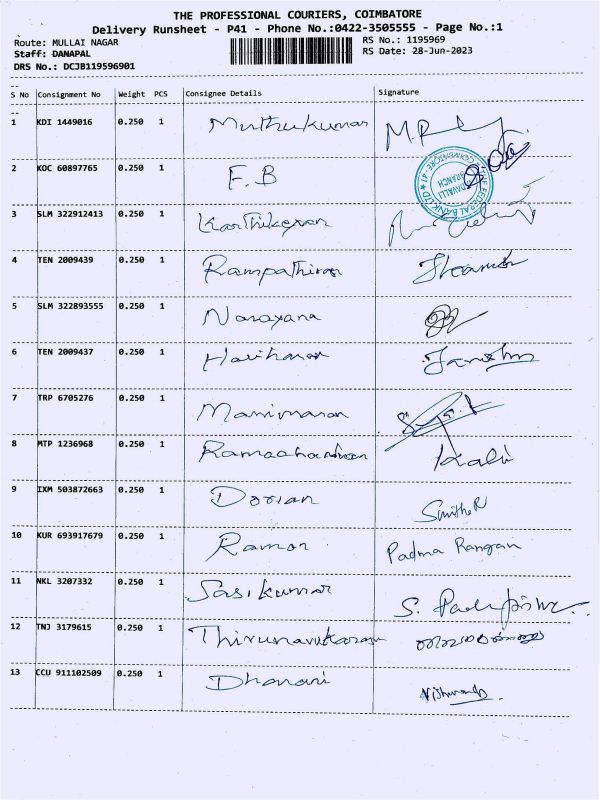 THE PROFESSIONAL COURIERS, COIMBATORE
Delivery Runsheet - P41 - Phone No.:0422-3505555 - Page No.:1
Route: MULLAI NAGAR
RS No.: 1195969
Staff: DANAPAL
RS Date: 28-Jun-2023
DRS No.: DCJB119596901
S No Consignment No Weight PCS Consignee Details Signature
1 KDI 1449016 0.250 1 Muthukumar M.R
2 KOC 60897765 0.250 1 F.B
THE FEDERAL BANK LTD COIMBATORE-41
VADAVALLI
BRANCH
3 SLM 322912413 0.250 1 Karthikeyan
4 TEN 2009439 0.250 1 Rampathiran
5 SLM 322893555 0.250 1 Narayana
6 TEN 2009437 0.250 1 Hariharan
7 TRP 6705276 0.250 1 Manimaran
8 MTP 1236968 0.250 1 Ramachandran Kali
9 IXM 503872663 0.250 1 Dorian Smitha R
10 KUR 693917679 0.250 1 Raman Padma Rangan
11 NKL 3207332 0.250 1 Sasikumar S.
12 TNJ 3179615 0.250 1 Thirunavukarasu
13 CCU 911102509 0.250 1 Dharani